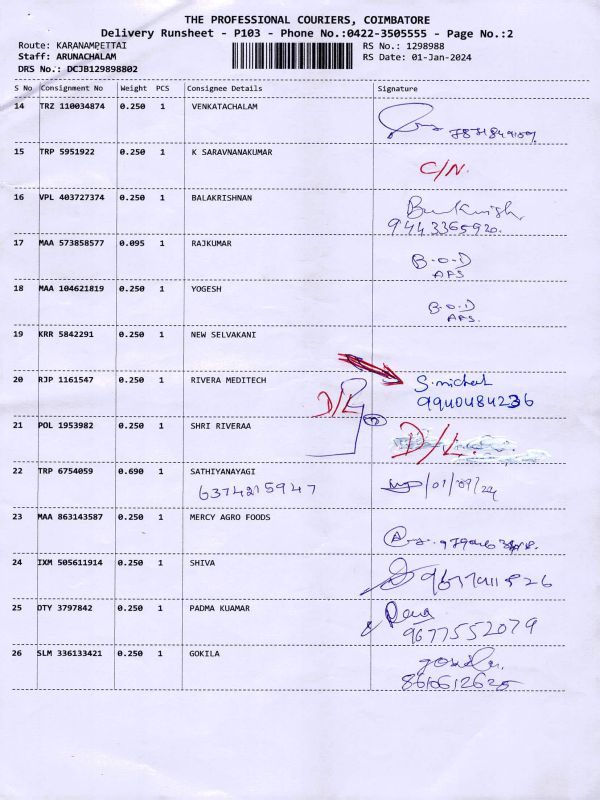 THE PROFESSIONAL COURIERS, COIMBATORE
Delivery Runsheet - P103 - Phone No.:0422-3505555 - Page No.:2
Route: KARANAMPETTAI RS No.: 1298988
Staff: ARUNACHALAM RS Date: 01-Jan-2024
DRS No.: DCJB129898802
S No Consignment No Weight PCS Consignee Details Signature
14 TRZ 110034874 0.250 1 VENKATACHALAM
15 TRP 5951922 0.250 1 K SARAVNANAKUMAR C/N.
16 VPL 403727374 0.250 1 BALAKRISHNAN
9443365920.
17 MAA 573858577 0.095 1 RAJKUMAR B.O.D
APS
18 MAA 104621819 0.250 1 YOGESH B.O.D
APS.
19 KRR 5842291 0.250 1 NEW SELVAKANI
20 RJP 1161547 0.250 1 RIVERA MEDITECH D/L S.micheal
9940484236
21 POL 1953982 0.250 1 SHRI RIVERAA D/L.
22 TRP 6754059 0.690 1 SATHIYANAYAGI
6374215947
23 MAA 863143587 0.250 1 MERCY AGRO FOODS
24 IXM 505611914 0.250 1 SHIVA
25 DTY 3797842 0.250 1 PADMA KUAMAR
9677552079
26 SLM 336133421 0.250 1 GOKILA
8610612625